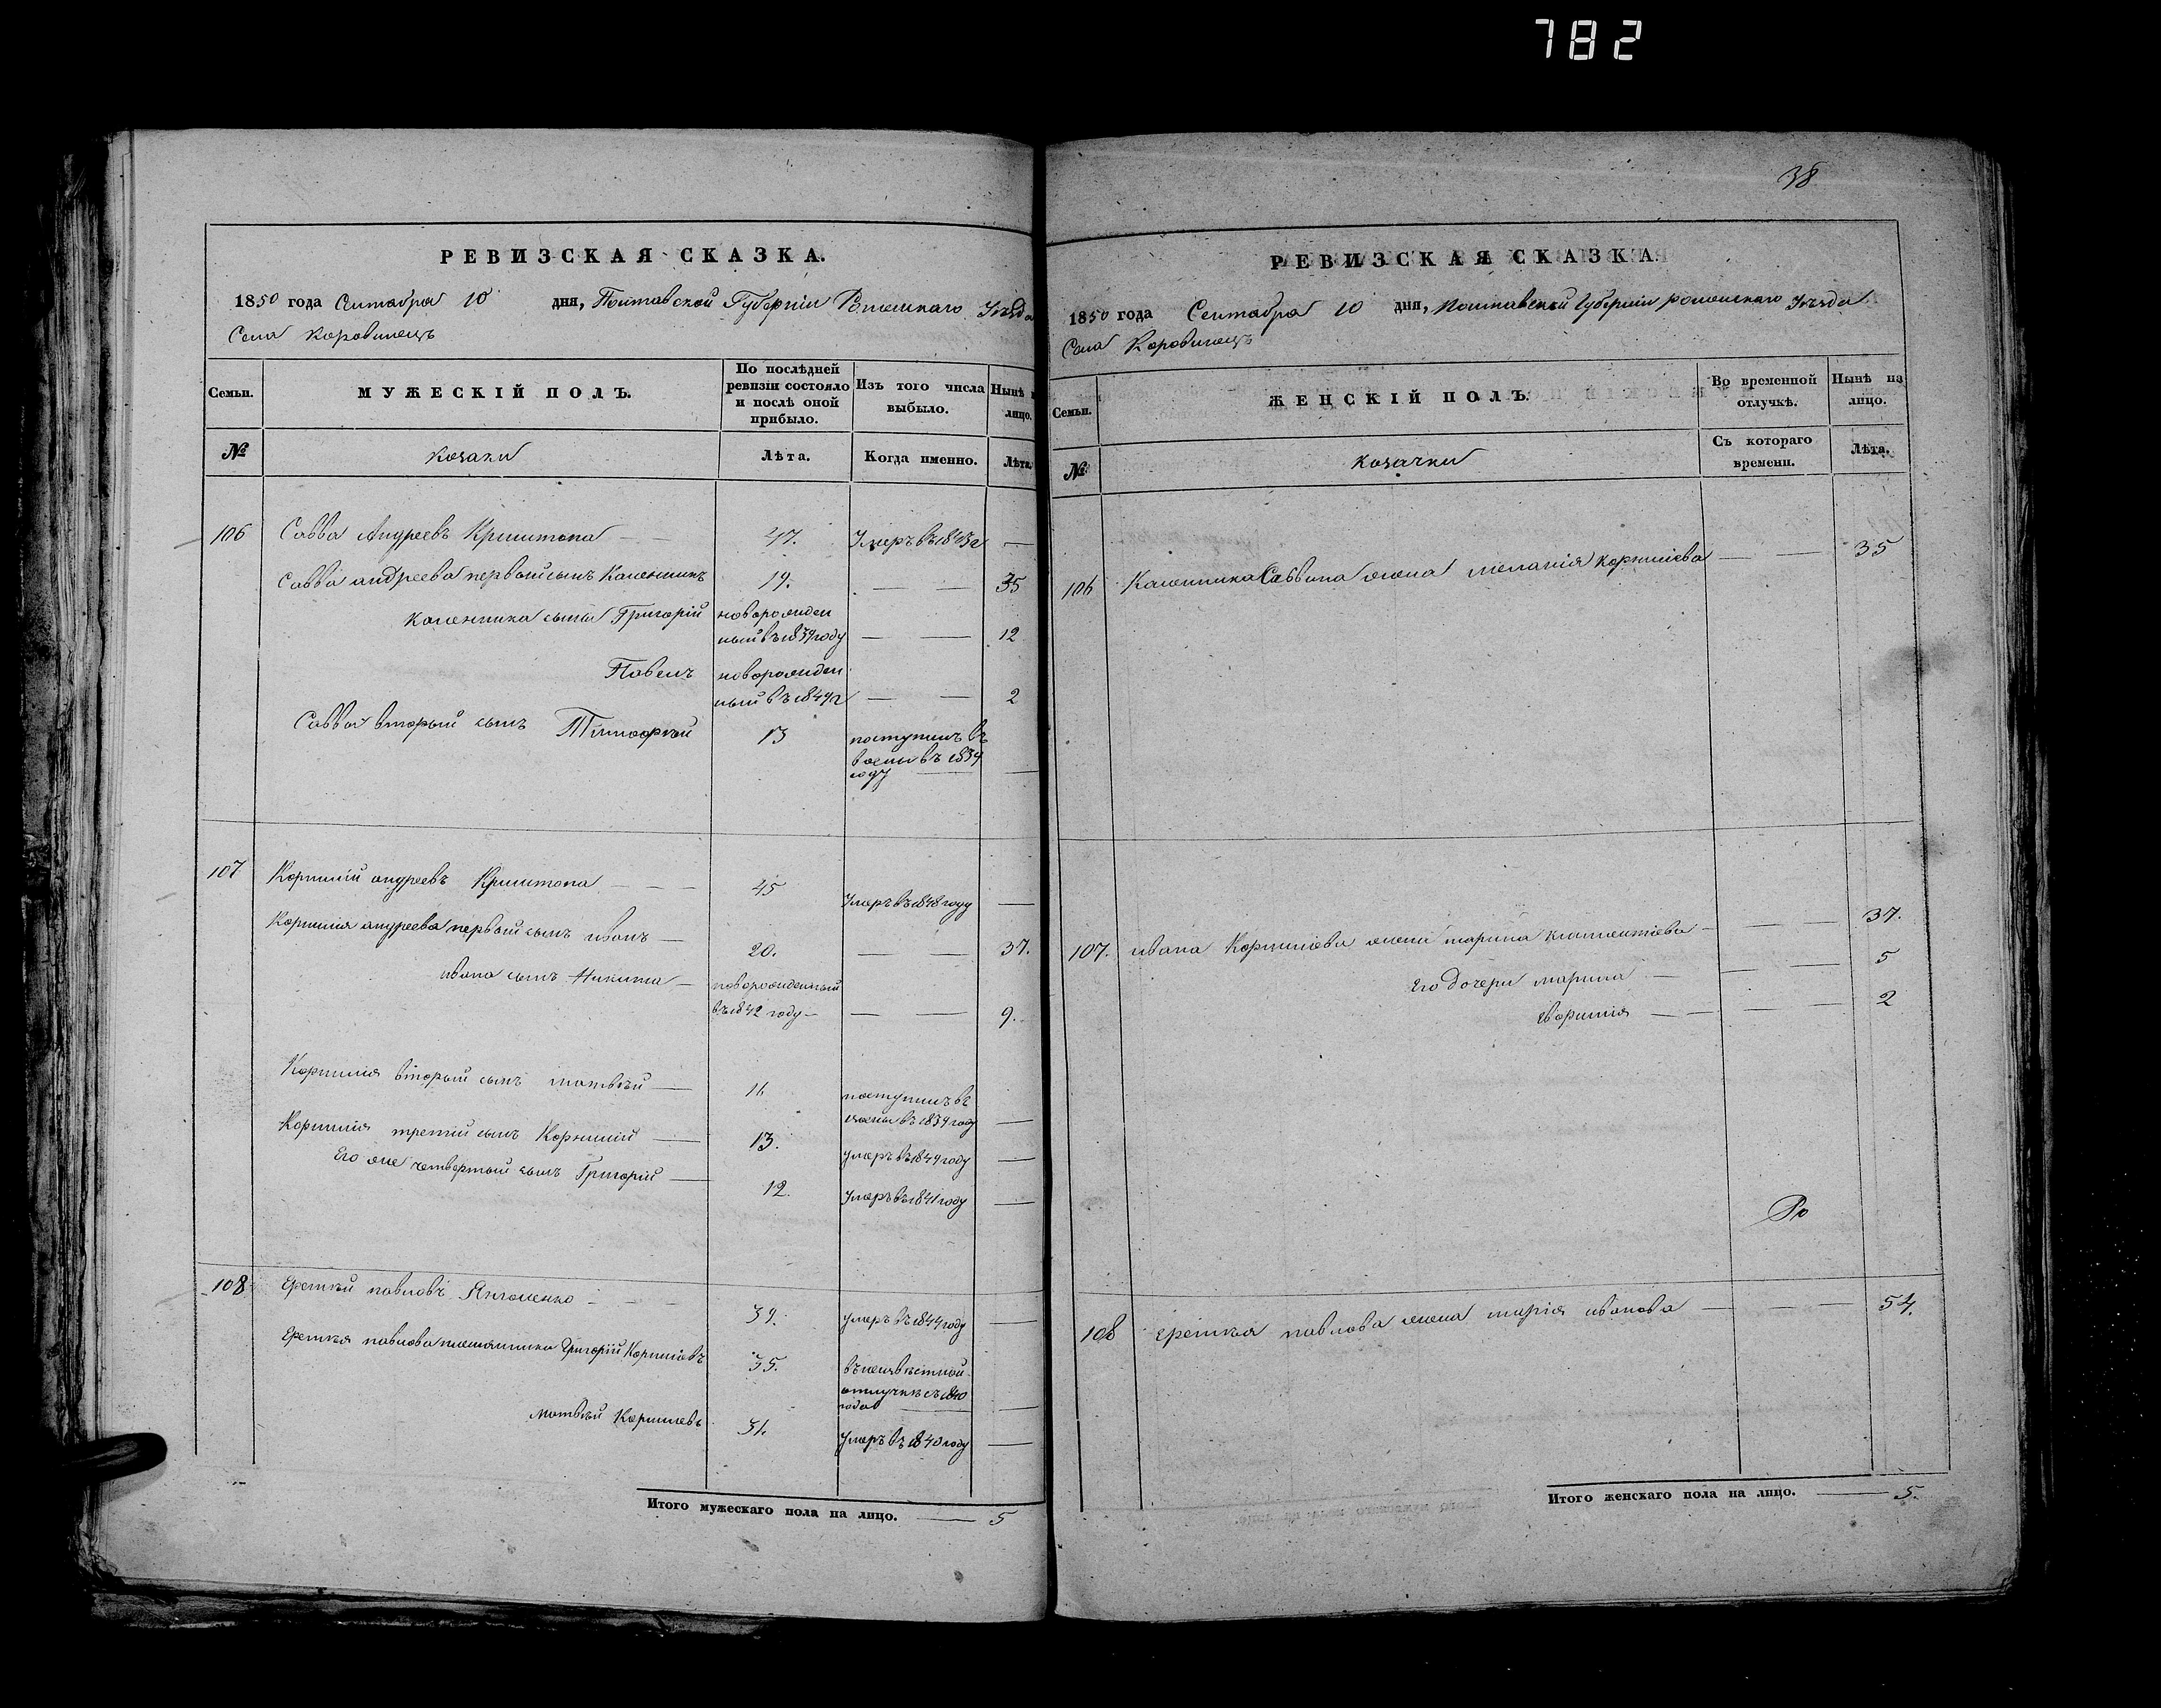 782
38
РЕВИЗСКАЯ СКАЗКА.
1850 года Сентября 10 дня, Полтавской Губерніи Роменскаго Уѣзда
Села Коровинецъ
Семьи.
МУЖЕСКІЙ ПОЛЪ.
По послѣдней ревизіи состояло и послѣ оной прибыло.
Изъ того числа выбыло.
Нынѣ
лицо.
№
козаки
Лѣта.
Когда именно.
Лѣта.
106 Савва Андреевъ Криштопа — — 47. Умеръ въ 1843г —
Саввы андреева первый сынъ Каленикъ 19. — — 35
Каленика сыны Григорій новорожден
ный въ 1839 году — — 12
Павелъ новорожден
ный въ 1849г — — 2
Саввы вторый сынъ Тимофѣй 13 поступилъ въ
въ 1834
году — —
107 Корнилій андреевъ Криштопа — — — 45 Умеръ въ 1848 году —
Корнилія андреева первый сынъ иванъ — 20. — — 37.
ивана сынъ Никита — новорожденный
въ 1842 году — — — 9.
Корнилія вторый сынъ матвѣй — 16 поступилъ въ
въ 1834 году —
Корнилія третій сынъ Корнилій — 13. умеръ въ 1844 году —
Его же четвертый сынъ Григорій — 12. Умеръ въ 1841 году —
108 Еремѣй павловъ — — — 39. умеръ въ 1844 году —
Еремѣя павлова племянники Григорій Корнліевъ 35. въ неизвѣстной
отлучкѣ съ 1840
года — —
матвѣй Корнліевъ 31. Умеръ въ 1840 году —
Итого мужескаго пола на лицо. — 5
РЕВИЗСКАЯ СКАЗКА.
1850 года Сентября 10 дня, Полтавской Губерніи роменскаго Уѣзда
Села Коровинецъ
Семьи.
ЖЕНСКІЙ ПОЛЪ.
Во временной отлучкѣ.
Нынѣ на лицо.
№
козачки
Съ котораго времени.
Лѣта.
106 Каленика Саввина жена меланія корнліева — — 35
107. ивана Корнліева жена марина климентіева — — — 37.
Его дочери марина — — — 5
— — — — 2
108 еремѣя павлова жена марія иванова — — — 54.
Итого женскаго пола на лицо. — 5.